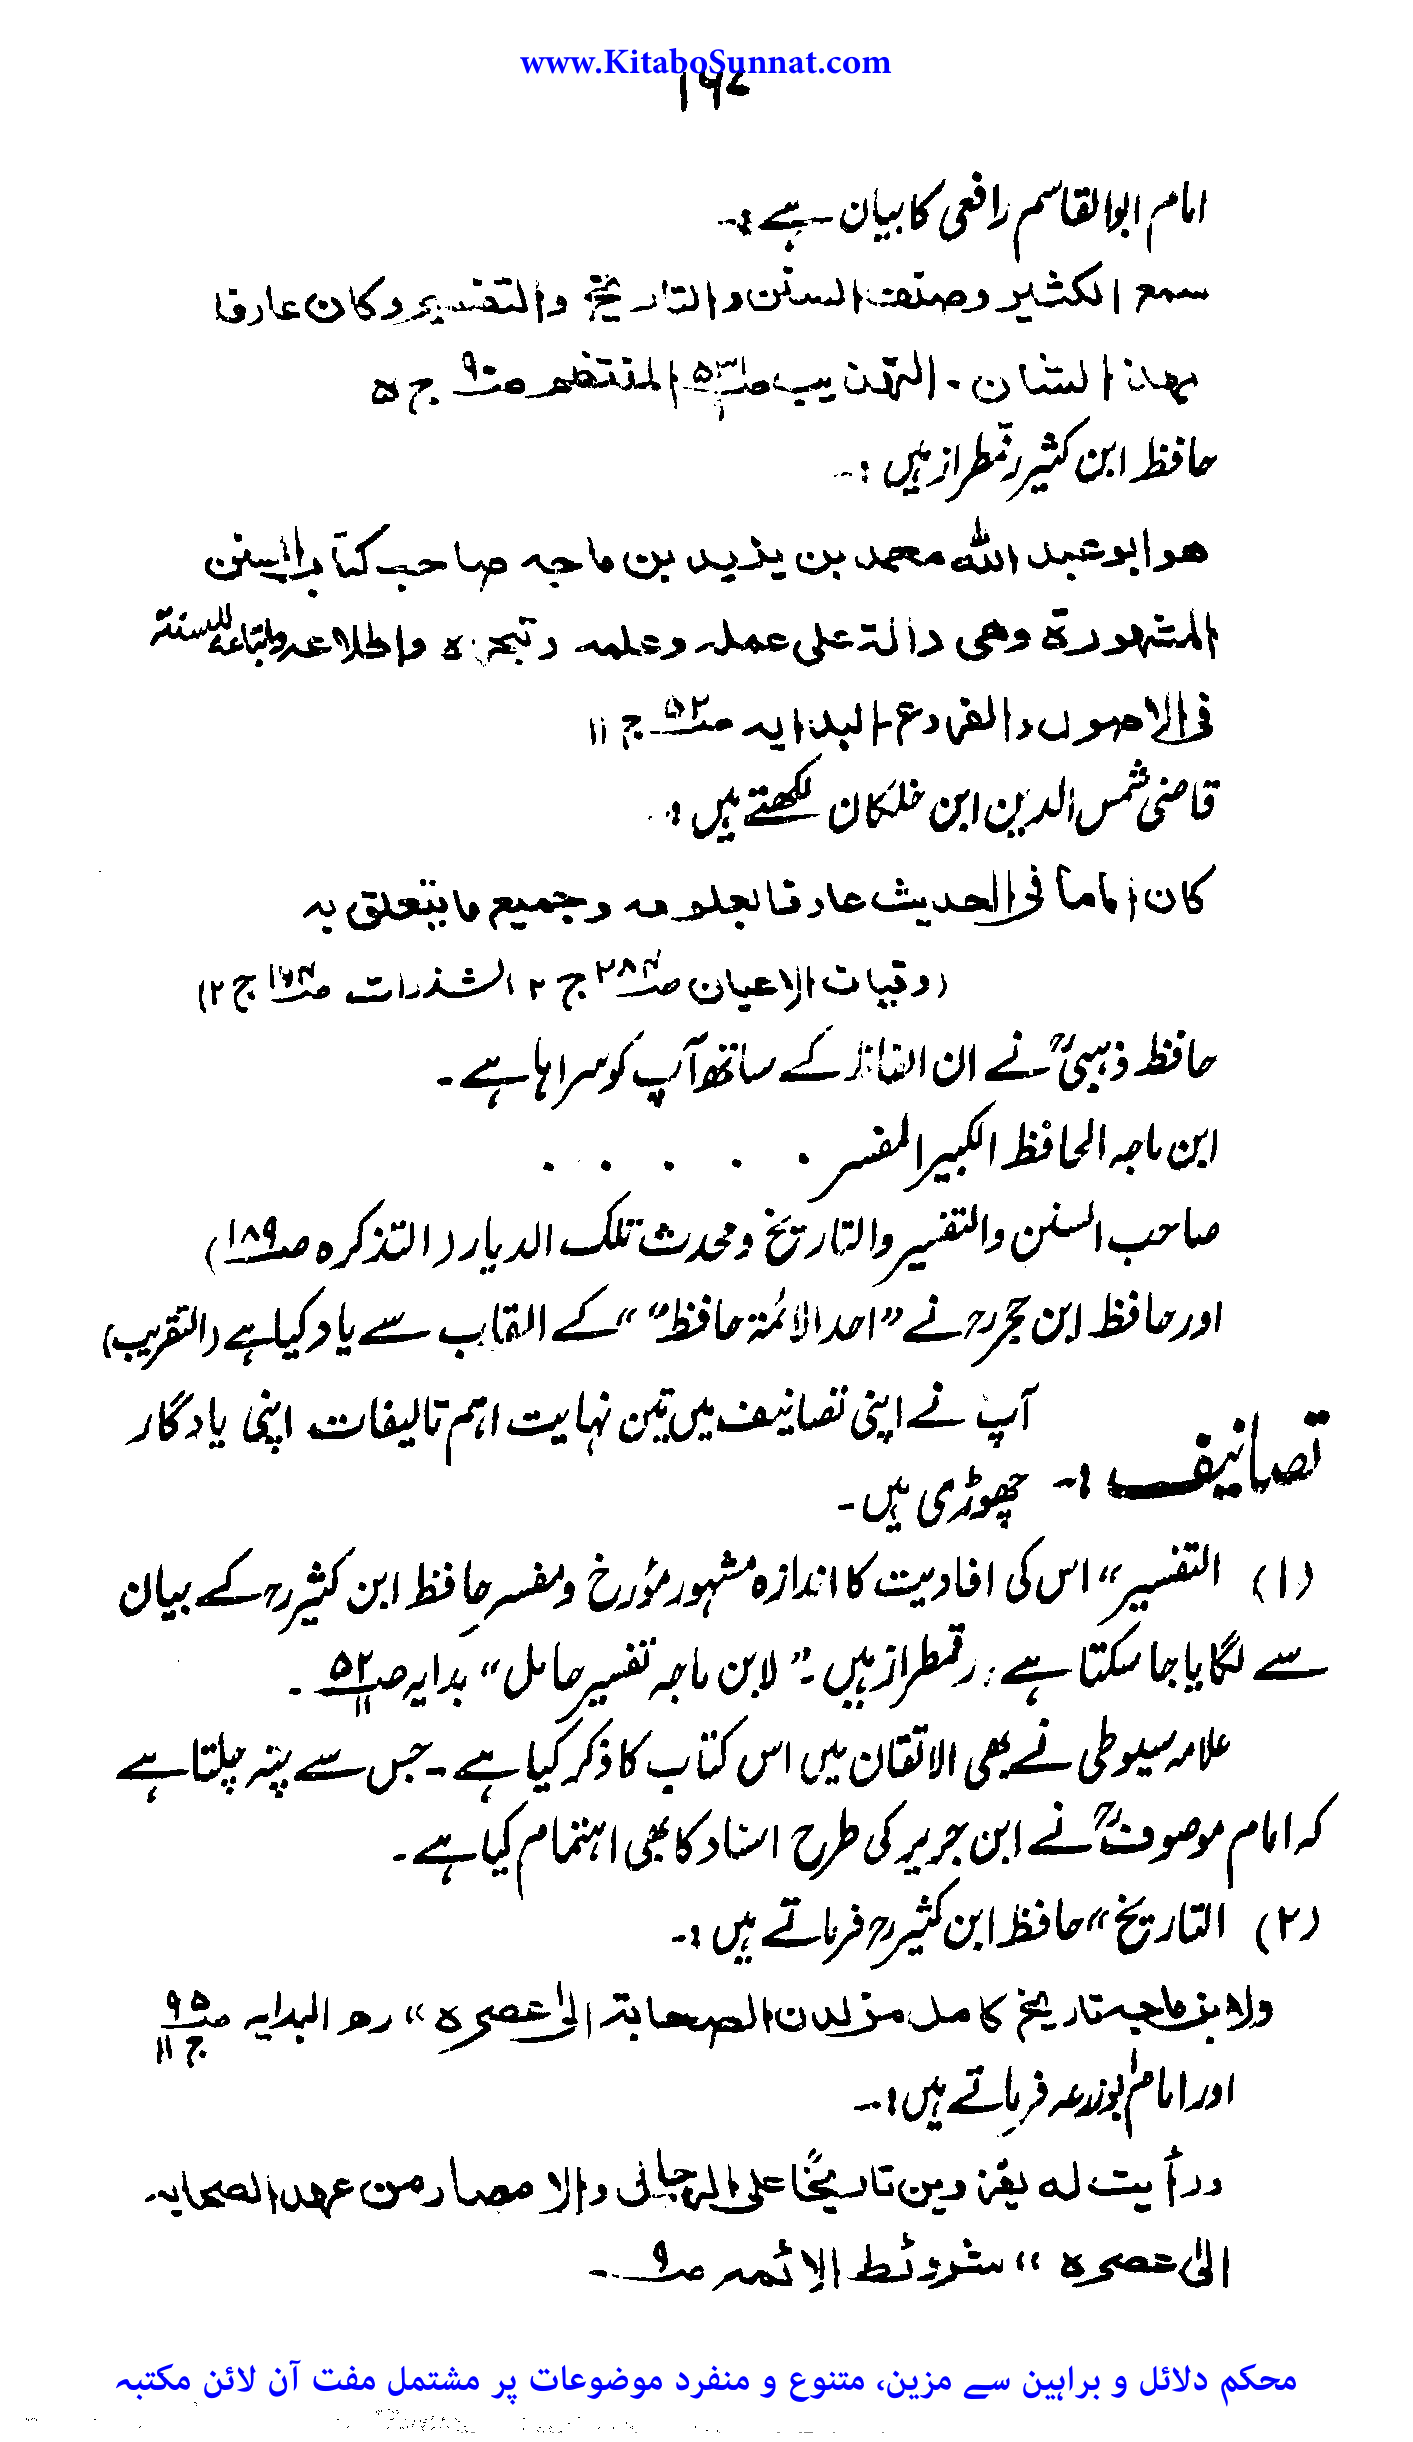 www.KitaboSunnat.com
۱۶۷
امام ابوالقاسم رافعی کا بیان ہے :۔
سمع الکثیر وصنف السنن والتاریخ والتفسیر وکان عارفا
بھذا الشان ۔ التہذیب ص۵۳۱ المنتظم ص۹۰ ج ۵
حافظ ابن کثیر رقمطراز ہیں :۔
ھو ابو عبد اللہ محمد بن یزید بن ماجہ صاحب کتاب السنن
المشہورۃ وھی دالۃ علی عملہ وعلمہ وتبحرہ واطلاعہ واتباعہ للسنۃ
فی الاصول والفروع البدایہ ص۵۲ ج ۱۱
قاضی شمس الدین ابن خلکان لکھتے ہیں :۔
کان اماماً فی الحدیث عارفا بعلومہ وجمیع ما یتعلق بہ
(وفیات الاعیان ص۲۸۴ ج ۲ الشذرات ص۱۶۴ ج ۲)
حافظ ذہبیؒ نے ان الفاظ کے ساتھ آپ کو سراہا ہے ۔
ابن ماجہ الحافظ الکبیر المفسر . . . . .
صاحب السنن والتفسیر والتاریخ ومحدث تلک الدیار (التذکرہ ص۱۸۹)
اور حافظ ابن حجرؒ نے ”احد الائمۃ حافظ“ کے القاب سے یاد کیا ہے (التقریب)
آپ نے اپنی تصانیف میں تین نہایت اہم تالیفات اپنی یادگار
تصانیف :۔ چھوڑی ہیں ۔
(۱) التفسیر“ اس کی افادیت کا اندازہ مشہور مؤرخ ومفسر حافظ ابن کثیرؒ کے بیان
سے لگایا جا سکتا ہے، رقمطراز ہیں ۔ ”لابن ماجہ تفسیر حامل“ بدایہ ص۵۲/۱۱ ۔
علامہ سیوطی نے بھی الاتقان میں اس کتاب کا ذکر کیا ہے ۔ جس سے پتہ چلتا ہے
کہ امام موصوفؒ نے ابن جریر کی طرح اسناد کا بھی اہتمام کیا ہے ۔
(۲) التاریخ“ حافظ ابن کثیرؒ فرماتے ہیں :۔
ولابن ماجہ تاریخ کامل من لدن الصحابۃ الیٰ عصرہ“ البدایہ ص۹۵ ج ۱۱
اور امام ابوزرعہ فرماتے ہیں :۔
ورأیت لہ بقزوین تاریخاً علی الرجال والامصار من عھد الصحابہ
الیٰ عصرہ“ شروئط الائمہ ص۹ ۔
محکم دلائل و براہین سے مزین، متنوع و منفرد موضوعات پر مشتمل مفت آن لائن مکتبہ